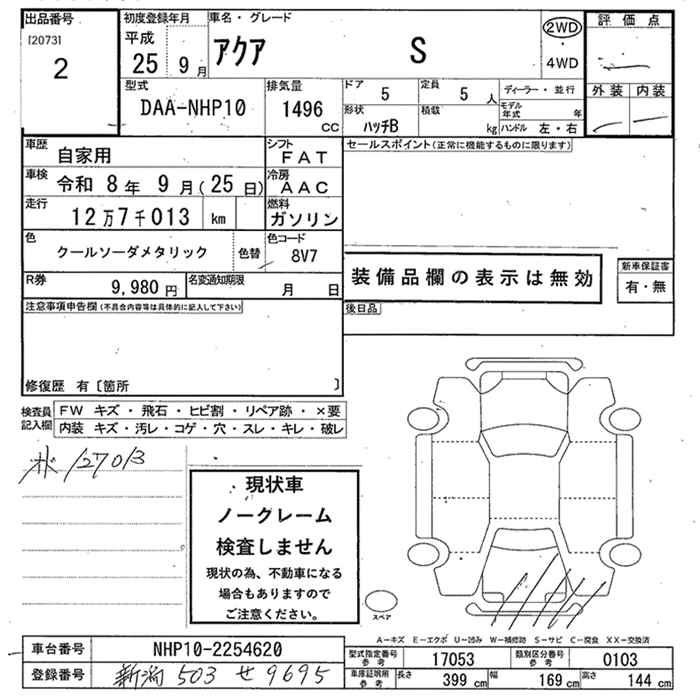 出品番号
[2073]
2
初度登録年月
平成
25 9 月
車名・グレード
アクア S
2WD
・
4WD
評価点
外装 内装
型式
DAA-NHP10
排気量
1496
cc
ドア
5
定員
5 人
ディーラー・並行
モデル
年式 年
形状
ハッチB
積載
kg
ハンドル 左・右
車歴
自家用
シフト
FAT
車検
令和 8年 9月(25日)
冷房
AAC
走行
12万7千013 km
燃料
ガソリン
色
クールソーダメタリック
色替
色コード
8V7
R券
9,980 円
名変通知期限
月 日
セールスポイント(正常に機能するものに限ります)
装備品欄の表示は無効
新車保証書
有・無
後日品
注意事項申告欄(不具合内容等は具体的に記入して下さい)
修復歴 有〔箇所 〕
検査員
記入欄
FW キズ・飛石・ヒビ割・リペア跡・×要
内装 キズ・汚レ・コゲ・穴・スレ・キレ・破レ
ボ 127013
現状車
ノークレーム
検査しません
現状の為、不動車になる
場合もありますので
ご注意ください。
スペア
A-キズ E-エクボ U-凹み W-補修跡 S-サビ C-腐食 XX-交換済
車台番号
NHP10-2254620
登録番号
新潟 503 せ 9695
型式指定番号
参考
17053
類別区分番号
参考
0103
車庫証明用
参考
長さ
399 cm
幅
169 cm
高さ
144 cm